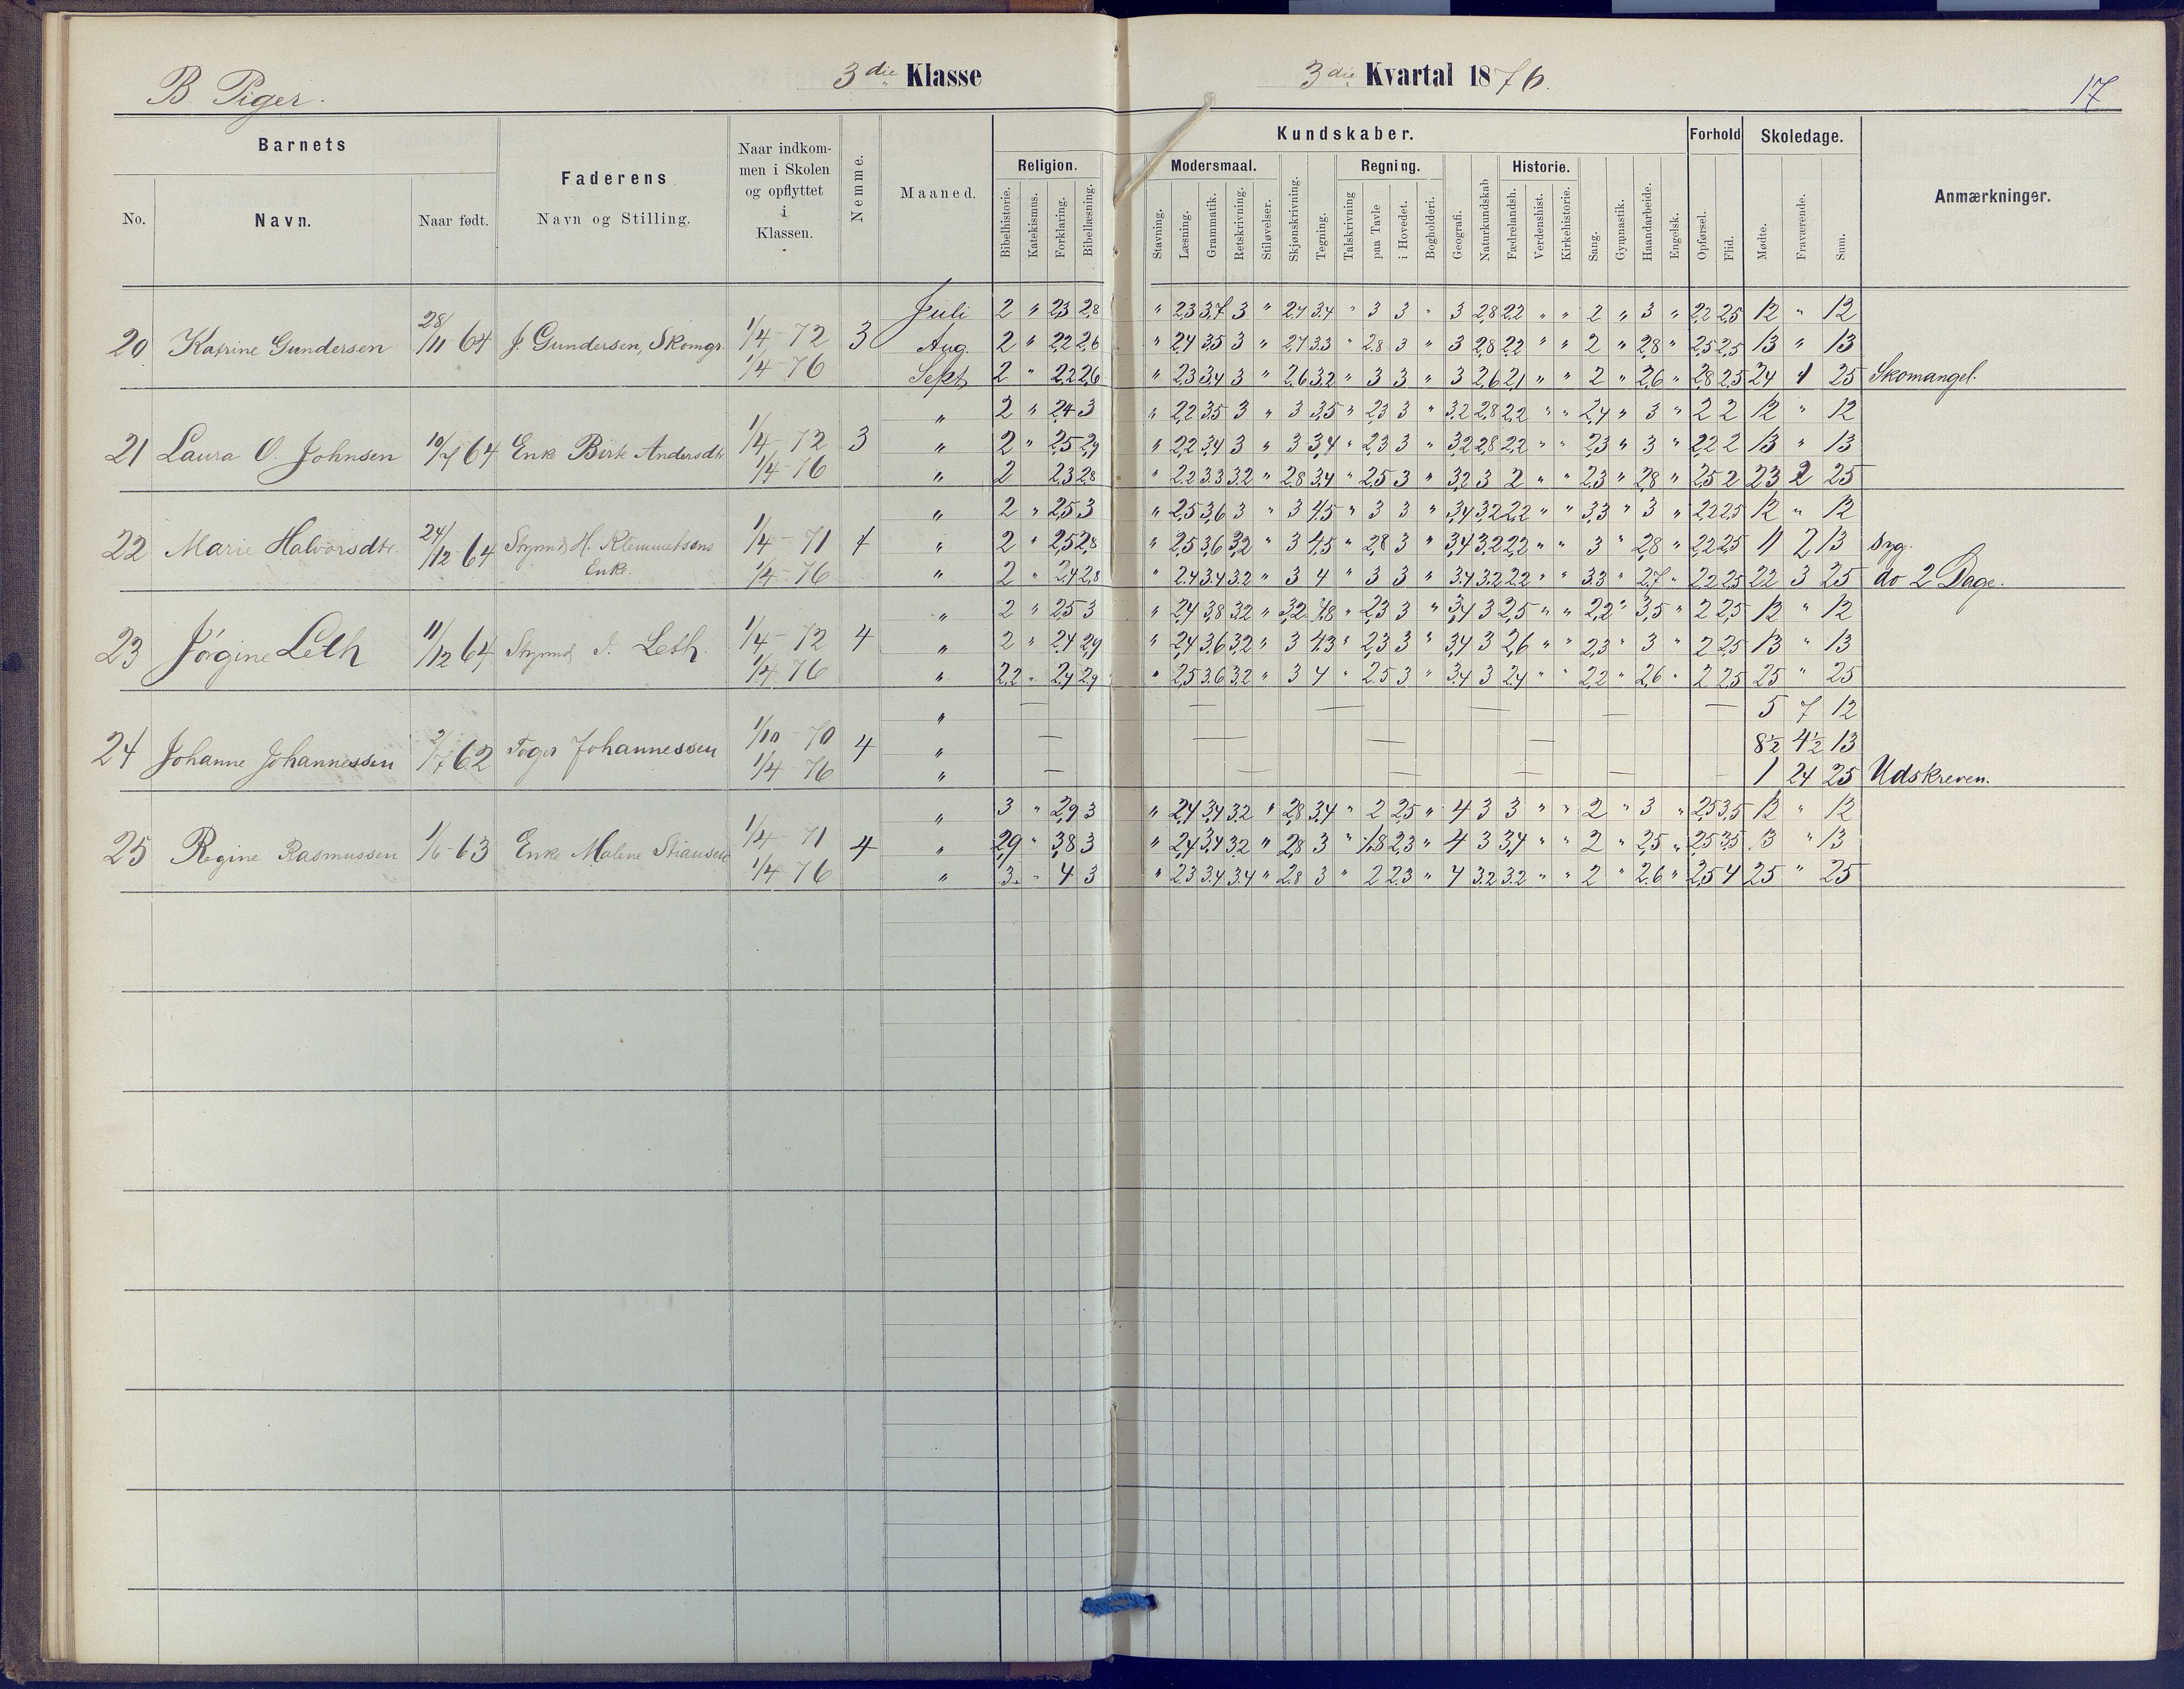 B. Piger.
3die Klasse
3die Kvartal 1876.
17
Barnets
Faderens
Naar indkommen i Skolen og opflyttet i Klassen.
Nemme.
Maaned.
Kundskaber.
Forhold
Skoledage.
Anmærkninger.
No.
Navn.
Naar født.
Navn og Stilling.
Religion.
Modersmaal.
Regning.
Historie.
Bibelhistorie. Katekismus. Forklaring. Bibellæsning. Stavning. Læsning. Grammatik. Retskrivning. Stiløvelser. Skjønskrivning. Tegning. Talskrivning paa Tavle i Hovedet. Bogholderi. Geografi. Naturkundskab Fædrelandsh. Verdenshist. Kirkehistorie. Sang. Gymnastik. Haandarbeide. Engelsk. Opførsel. Flid. Mødte. Fraværende. Sum.
Juli 2 " 2,3 2,8 " 2,3 3,7 3 " 2,7 3,4 " 3 3 " 3 2,8 2,2 " " 2 " 3 " 2,2 2,5 12 " 12
20 Katrine Gundersen 28/11 64 J. Gundersen, Skomgr. 1/4 - 72 3 Aug. 2 " 2,2 2,6 " 2,4 3,5 3 " 2,7 3,3 " 2,8 3 " 3 2,8 2,2 " " 2 " 2,8 " 2,5 2,5 13 " 13
1/4 - 76 Sept 2 " 2,2 2,6 " 2,3 3,4 3 " 2,6 3,2 " 3 3 " 3 2,6 2,1 " " 2 " 2,6 " 2,8 2,5 24 1 25 Skomangel.
" 2 " 2,4 3 " 2,2 3,5 3 " 3 3,5 " 2,3 3 " 3,2 2,8 2,2 " " 2,4 " 3 " 2 2 12 " 12
21 Laura O. Johnsen 10/7 64 Enke Birte Andersdtr 1/4 - 72 3 " 2 " 2,5 2,9 " 2,2 3,4 3 " 3 3,4 " 2,3 3 " 3,2 2,8 2,2 " " 2,3 " 3 " 2,2 2 13 " 13
1/4 - 76 " 2 2,3 2,8 " 2,2 3,3 3,2 " 2,8 3,4 " 2,5 3 " 3,2 3 2 " " 2,3 " 2,8 " 2,5 2 23 2 25
" 2 " 2,5 3 " 2,5 3,6 3 " 3 4,5 " 3 3 " 3,4 3,2 2,2 " " 3,3 " 3 " 2,2 2,5 12 " 12
22 Marie Halvorsdtr. 24/12 64 Styrmd H. Klemmetsens 1/4 - 71 4 " 2 " 2,5 2,8 " 2,5 3,6 3,2 " 3 4,5 " 2,8 3 " 3,4 3,2 2,2 " " 3 " 2,8 " 2,2 2,5 11 2 13 syg.
Enke. 1/4 - 76 " 2 " 2,4 2,8 " 2,4 3,4 3,2 " 3 4 " 3 3 " 3,4 3,2 2,2 " " 3,3 " 2,7 " 2,2 2,5 22 3 25 do 2 Dage.
" 2 " 2,5 3 " 2,4 3,8 3,2 " 3,2 4,8 " 2,3 3 " 3,4 3 2,5 " " 2,2 " 3,5 " 2 2,5 12 " 12
23 Jørgine Leth 11/12 64 Styrmd J. Leth. 1/4 - 72 4 " 2 " 2,4 2,9 " 2,4 3,6 3,2 " 3 4,3 " 2,3 3 " 3,4 3 2,6 " " 2,3 " 3 " 2 2,5 13 " 13
1/4 76 " 2,2 " 2,4 2,9 " 2,5 3,6 3,2 " 3 4 " 2,5 3 " 3,4 3 2,4 " " 2,2 " 2,6 " 2 2,5 25 " 25
" — — — — — — 5 7 12
24 Johanne Johannessen 2/7 62 Toger Johannessen 1/10 - 70 4 " — — — — 8½ 4½ 13
1/4 - 76 " — — — — — 1 24 25 Udskreven.
" 3 " 2,9 3 " 2,4 3,4 3,2 " 2,8 3,4 " 2 2,5 " 4 3 3 " " 2 " 3 " 2,5 3,5 12 " 12
25 Regine Rasmussen 1/6 - 63 Enke Malene Stiansen 1/4 - 71 4 " 2,9 " 3,8 3 " 2,4 3,4 3,2 " 2,8 3 " 1,8 2,3 " 4 3 3,4 " " 2 " 2,5 " 2,5 3,5 13 " 13
1/4 76 " 3 " 4 3 " 2,3 3,4 3,4 " 2,8 3 " 2 2,3 " 4 3,2 3,2 " " 2 " 2,6 " 2,5 4 25 " 25